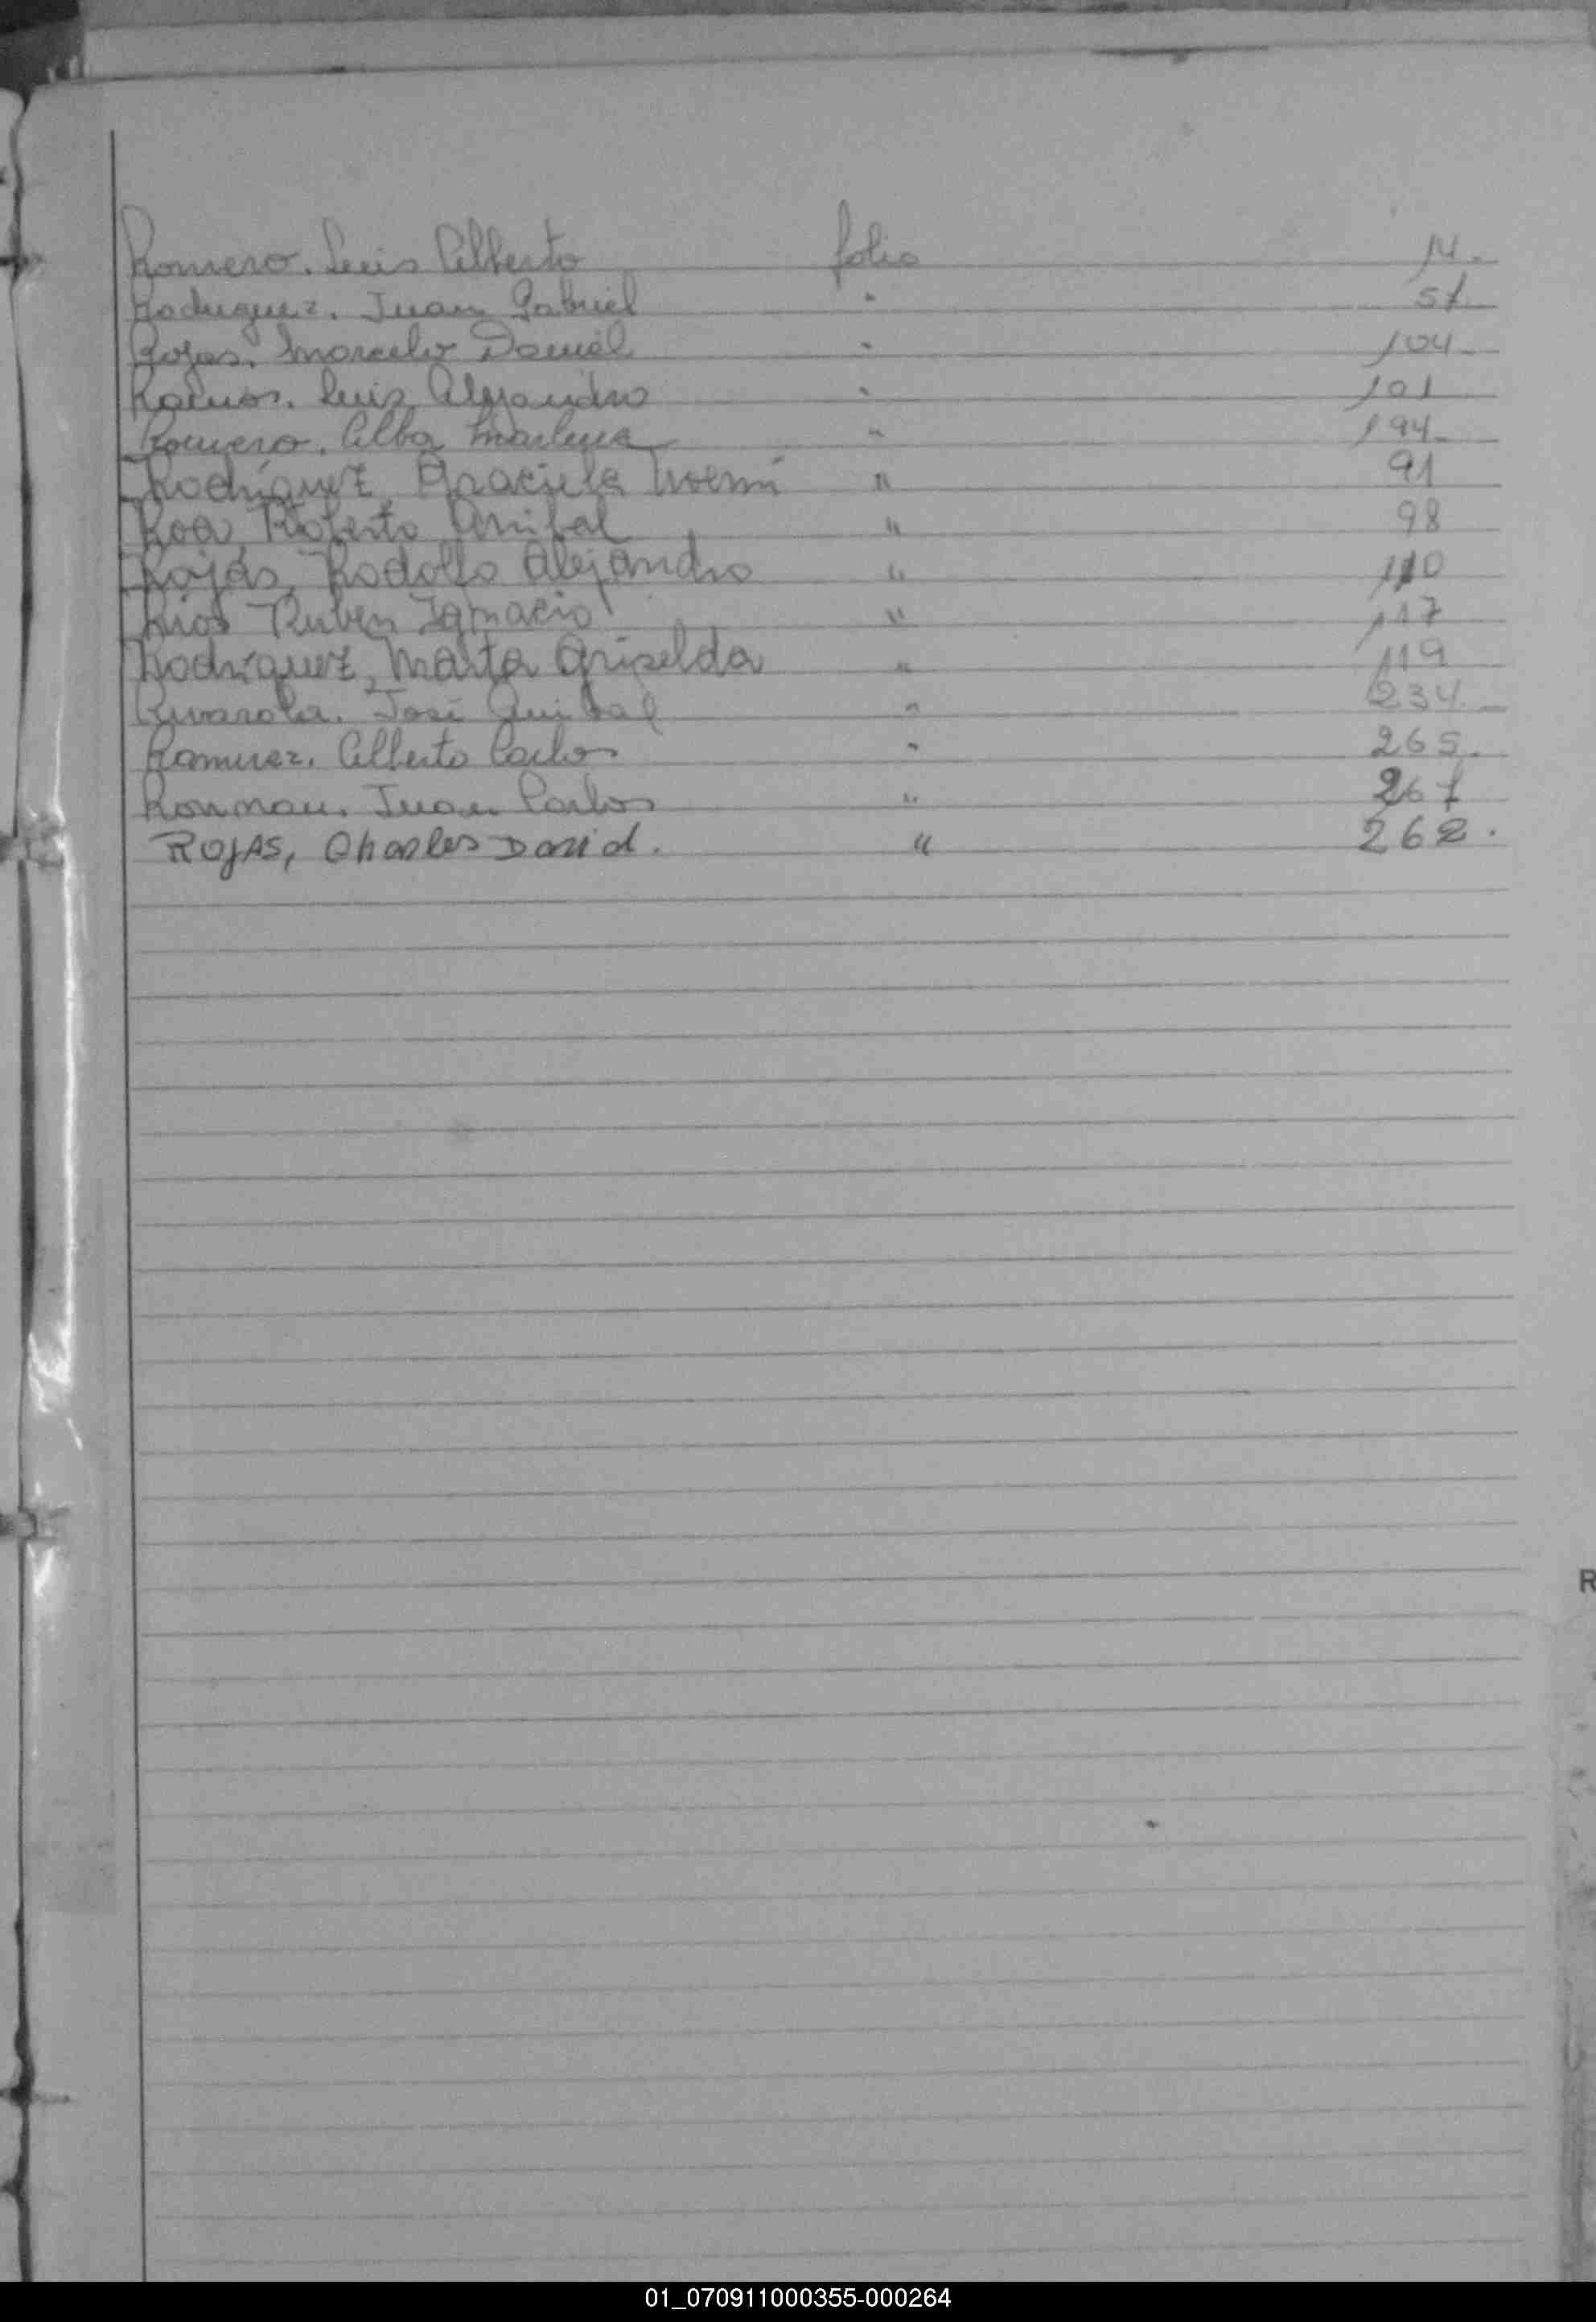 Romero. Luis Alberto folio 14.
Rodriguez. Juan Gabriel " 57.
Rojas. Marcelo Daniel " 104.
Ramos. Luis Alejandro " 101
Romero. Alba Marlene " 194.
Rodríguez, Graciela Noemi " 91
Roa, Roberto Anibal " 98
Rojas, Rodolfo Alejandro " 110
Rios Ruben Ignacio " 117
Rodríguez, Marta Griselda " 119
Rivarola. José Anibal " 234.
Ramirez. Alberto Carlos " 265.
Juan Carlos " 267
ROJAS, Charles David. " 262.
R
01_070911000355-000264